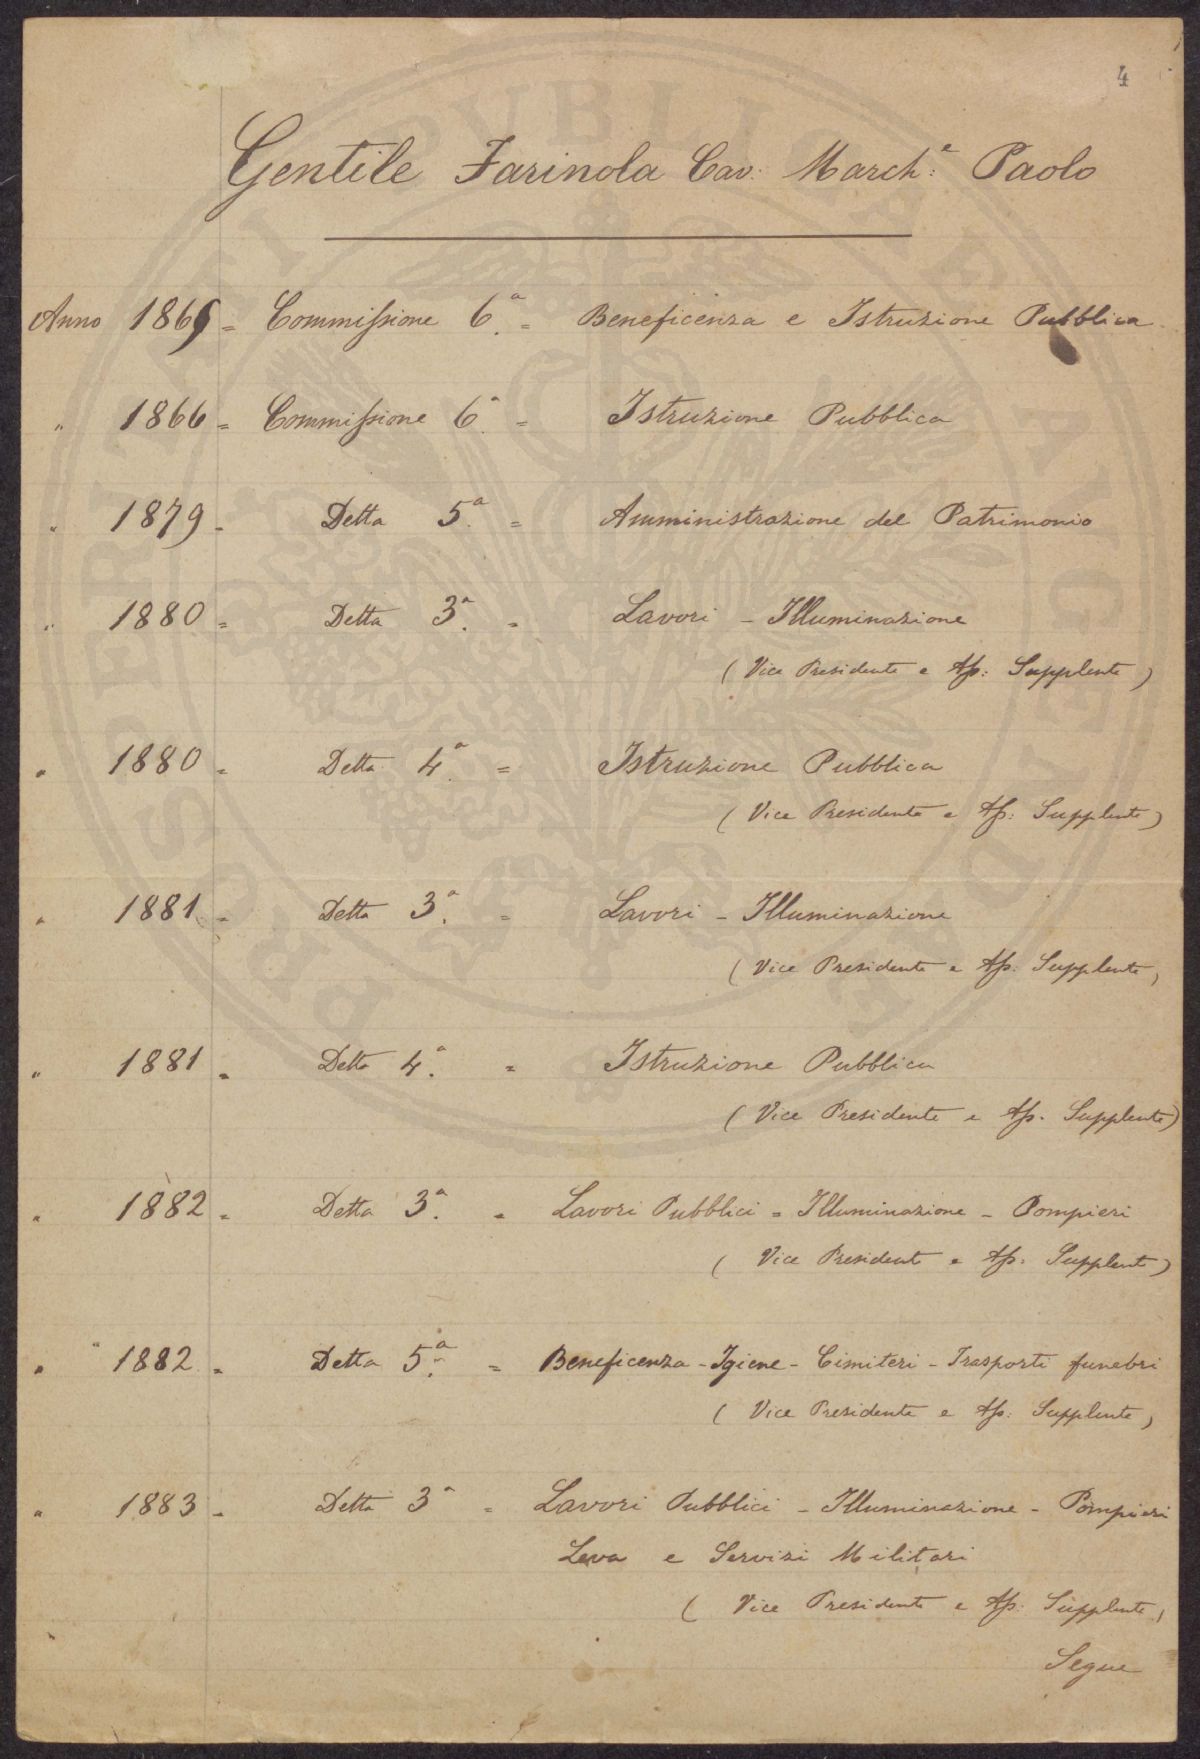 4
Gentile Farinola Cav: March:e Paolo
Anno 1865 = Commissione 6.a = Beneficenza e Istruzione Pubblica
" 1866 = Commissione 6.a = Istruzione Pubblica
" 1879 = Detta 5.a = Amministrazione del Patrimonio
" 1880 = Detta 3.a = Lavori - Illuminazione
( Vice Presidente e Ass: Supplente )
" 1880 = Detta 4.a = Istruzione Pubblica
( Vice Presidente e Ass: Supplente )
" 1881 = Detta 3.a = Lavori - Illuminazione
( Vice Presidente e Ass: Supplente )
" 1881 = Detta 4.a = Istruzione Pubblica
( Vice Presidente e Ass. Supplente )
" 1882 = Detta 3.a = Lavori Pubblici = Illuminazione - Pompieri
( Vice Presidente e Ass: Supplente )
" 1882 = Detta 5.a = Beneficenza - Igiene - Cimiteri - Trasporti funebri
( Vice Presidente e Ass: Supplente )
" 1883 = Detta 3a = Lavori Pubblici - Illuminazione - Pompieri
Leva e Servizi Militari
( Vice Presidente e Ass: Supplente )
Segue